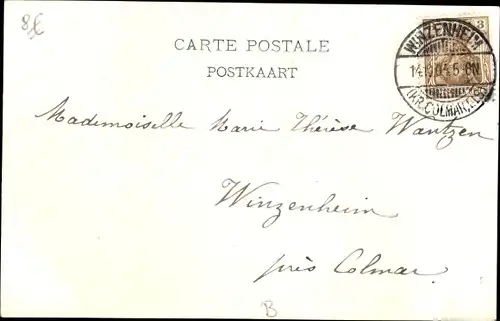 8£
CARTE POSTALE
POSTKAART
WINZENHEIM
3
(KR. COLMAR, ELS)
Mademoiselle Marie Thérèse Wantzen
Winzenheim
près Colmar.
B